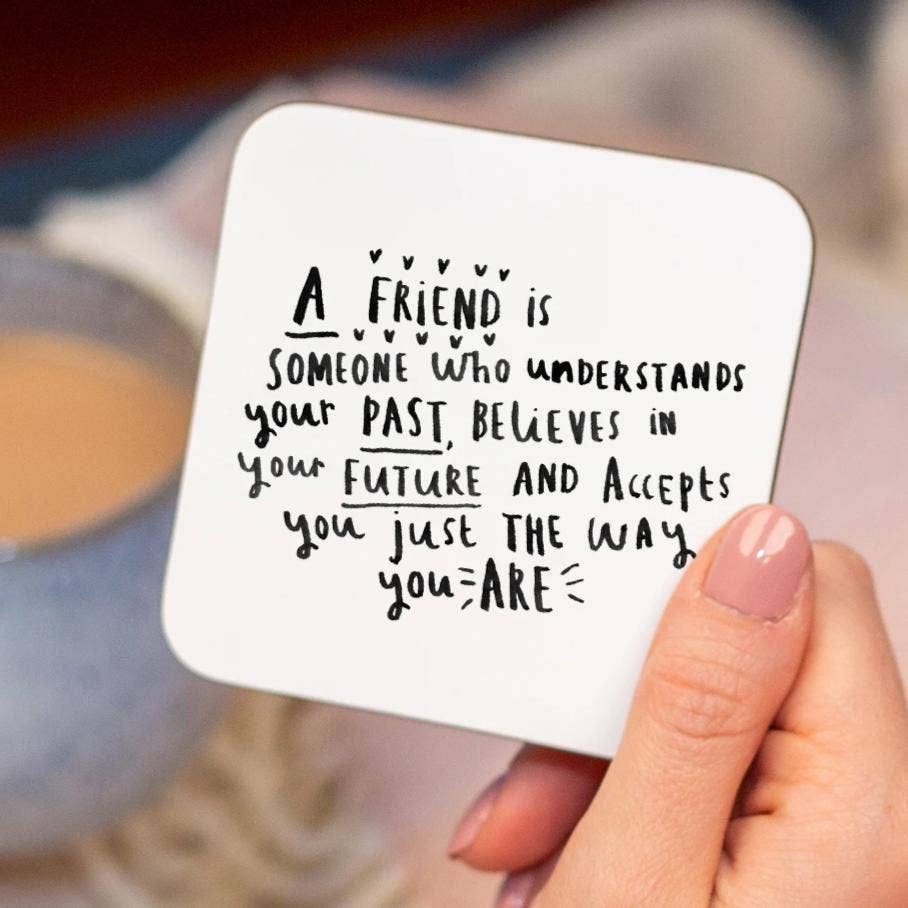 A FRiEND is
SOMEONE Who unDERSTANDS
your PAST, BELiEVES iN
your FUTURE AND AccEpts
you just THE WAY
you ARE